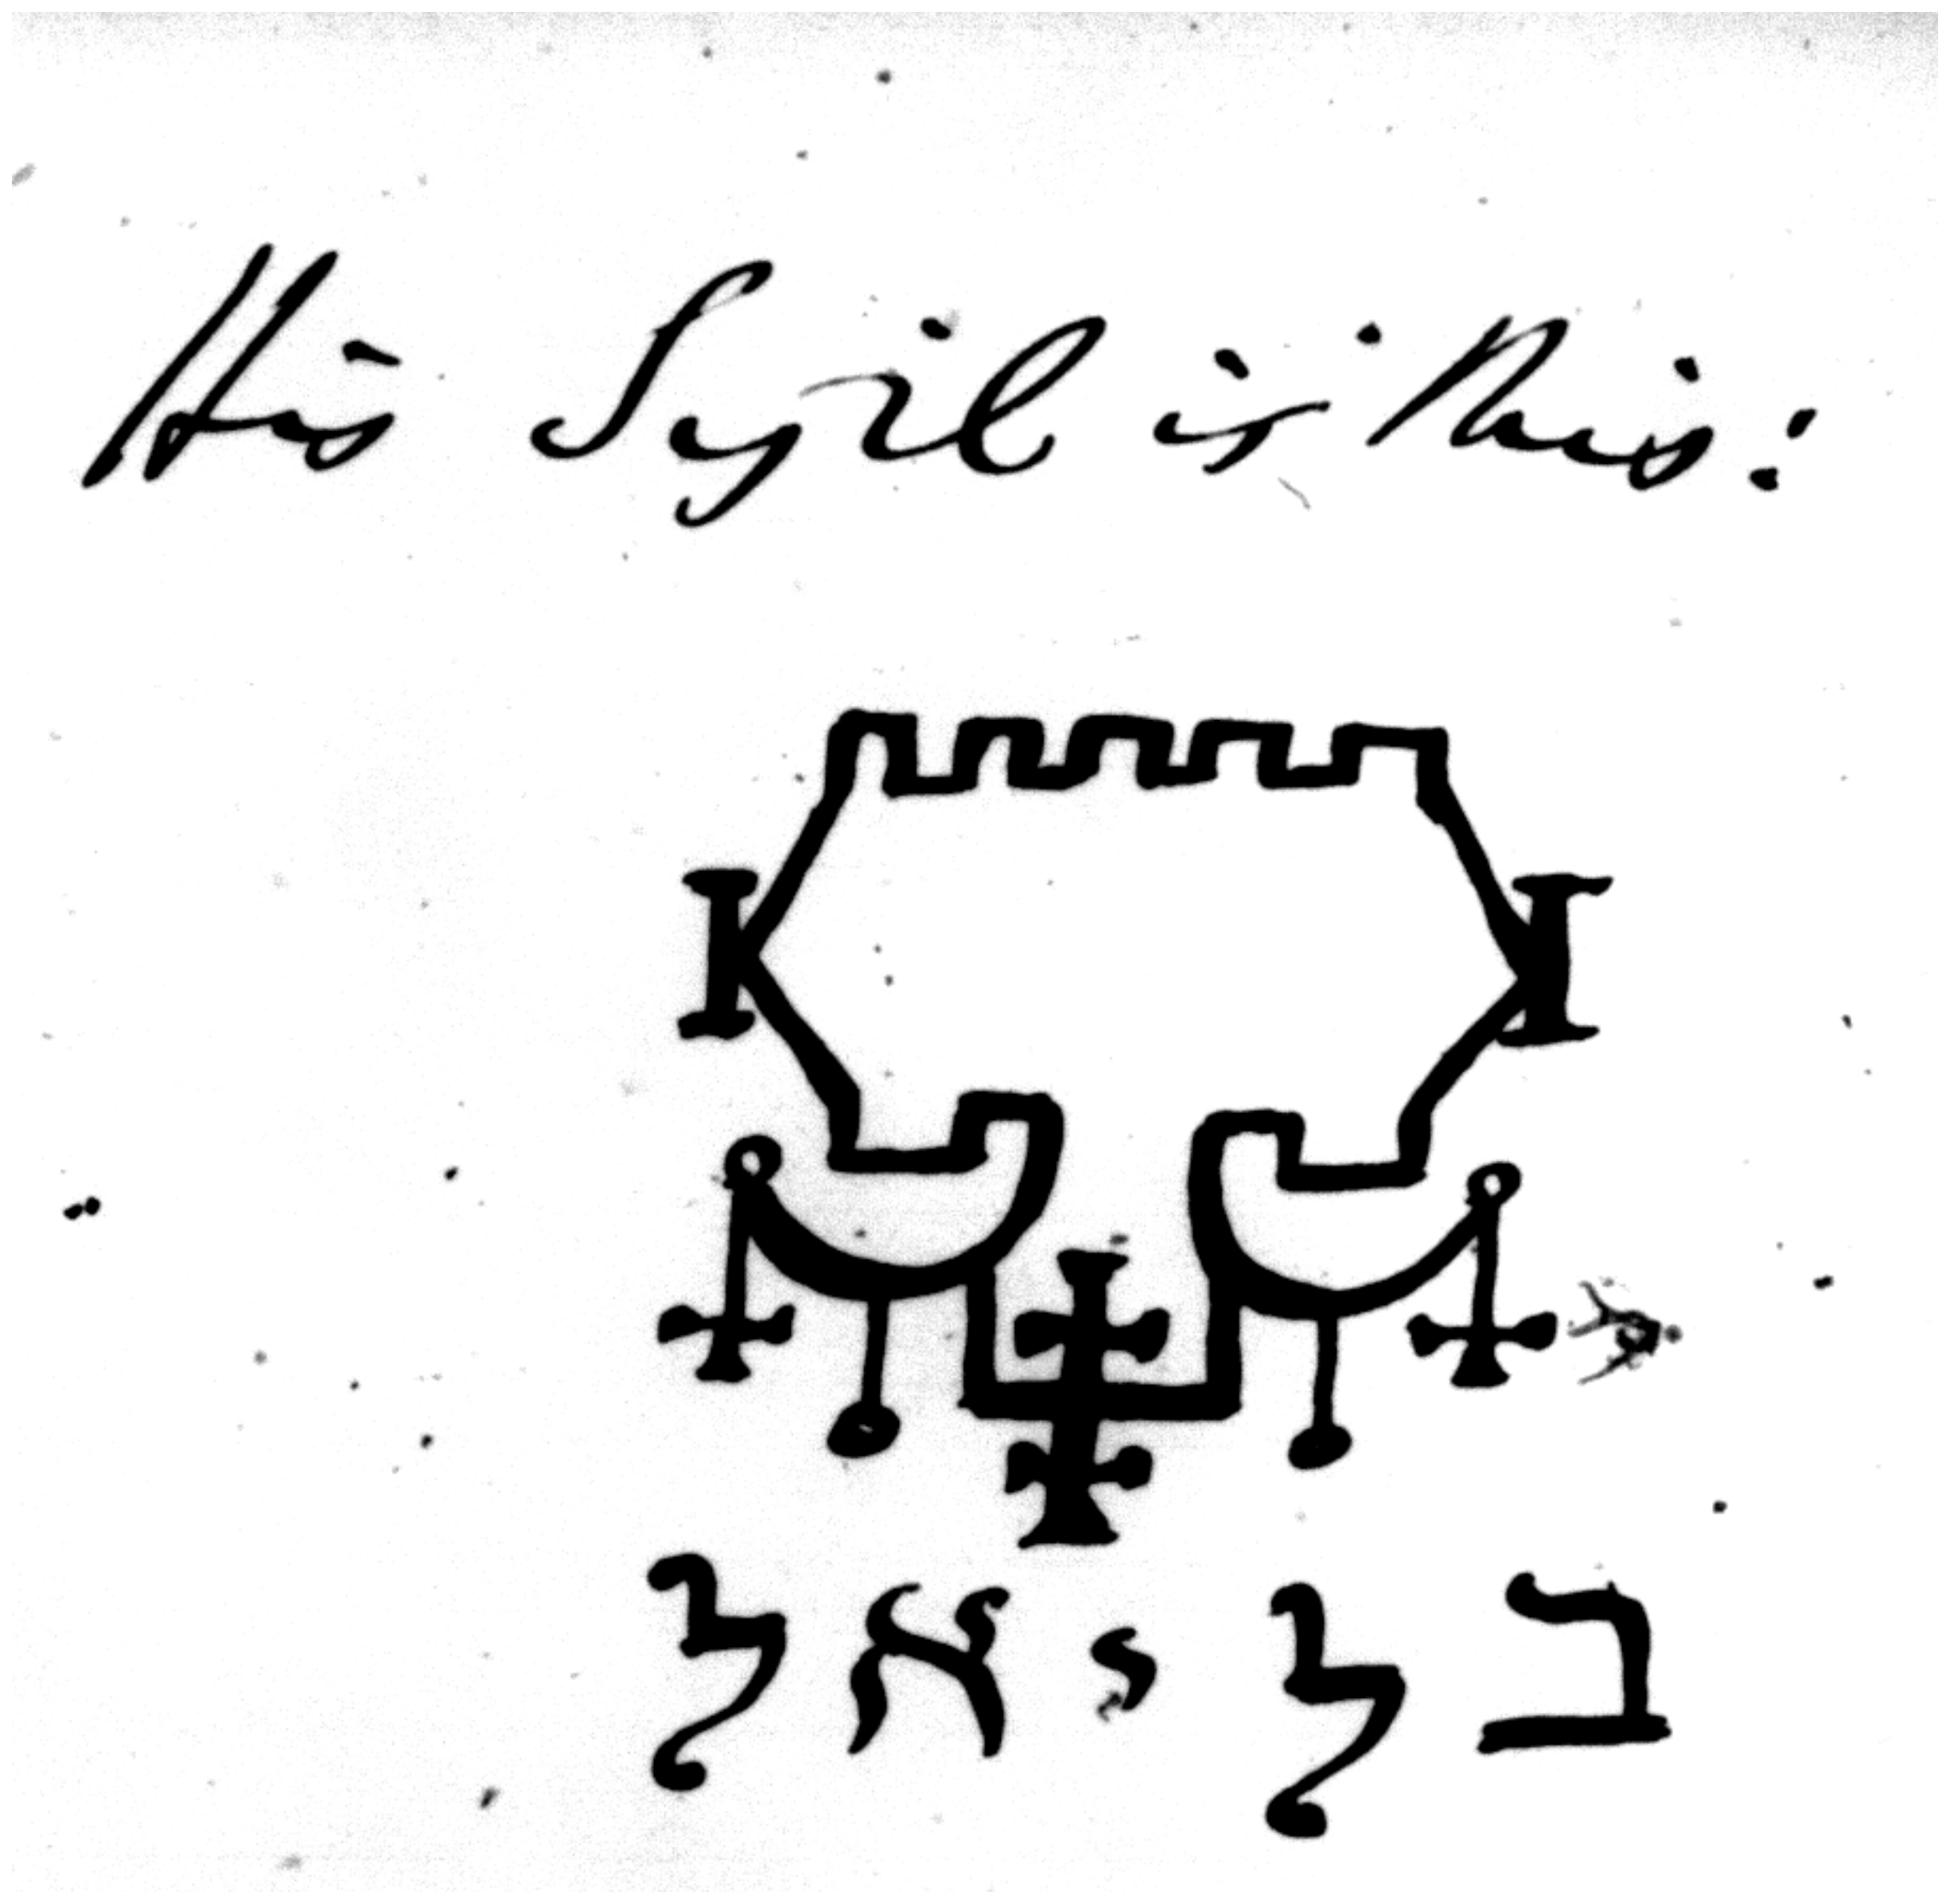 His Sygil is this:
בליאל